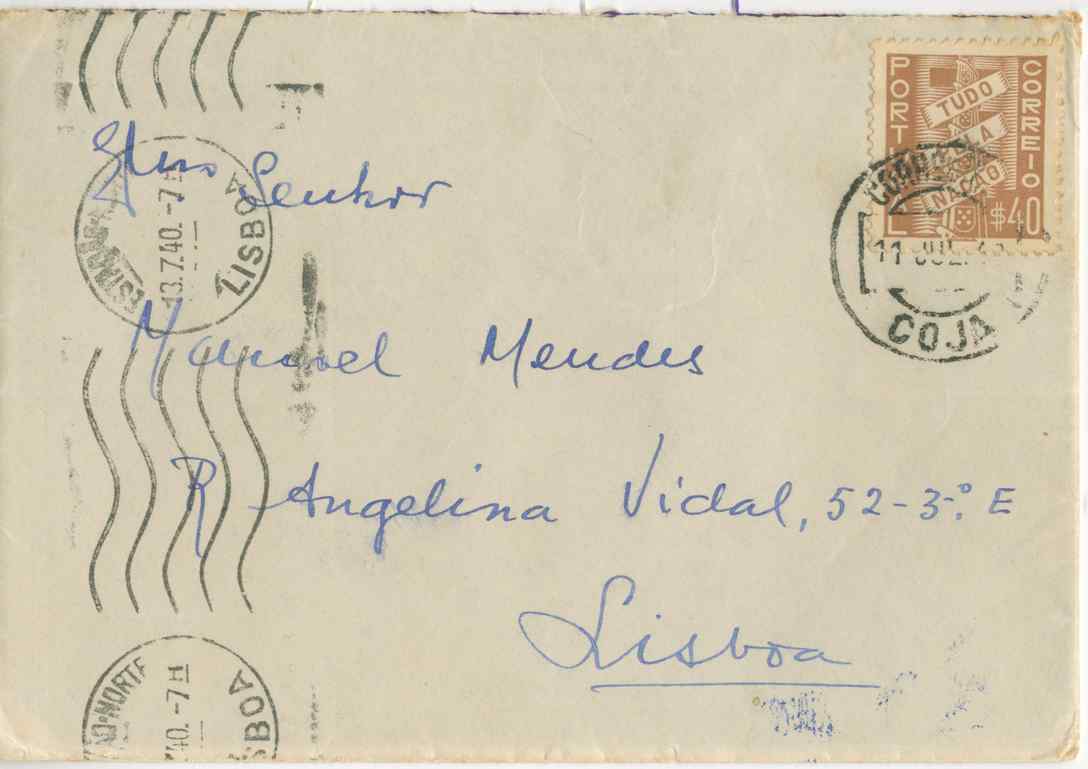 PORTUGAL
CORREIO
TUDO
PELA
NAÇÃO
$40
CORREIOS
11 JUL. 40
COJA
LISBOA
13.7.40.-7H
Exmo Senhor
Manuel Mendes
R Angelina Vidal, 52-3.º E
Lisboa
ÃO-NORTE
40.-7H
SBOA